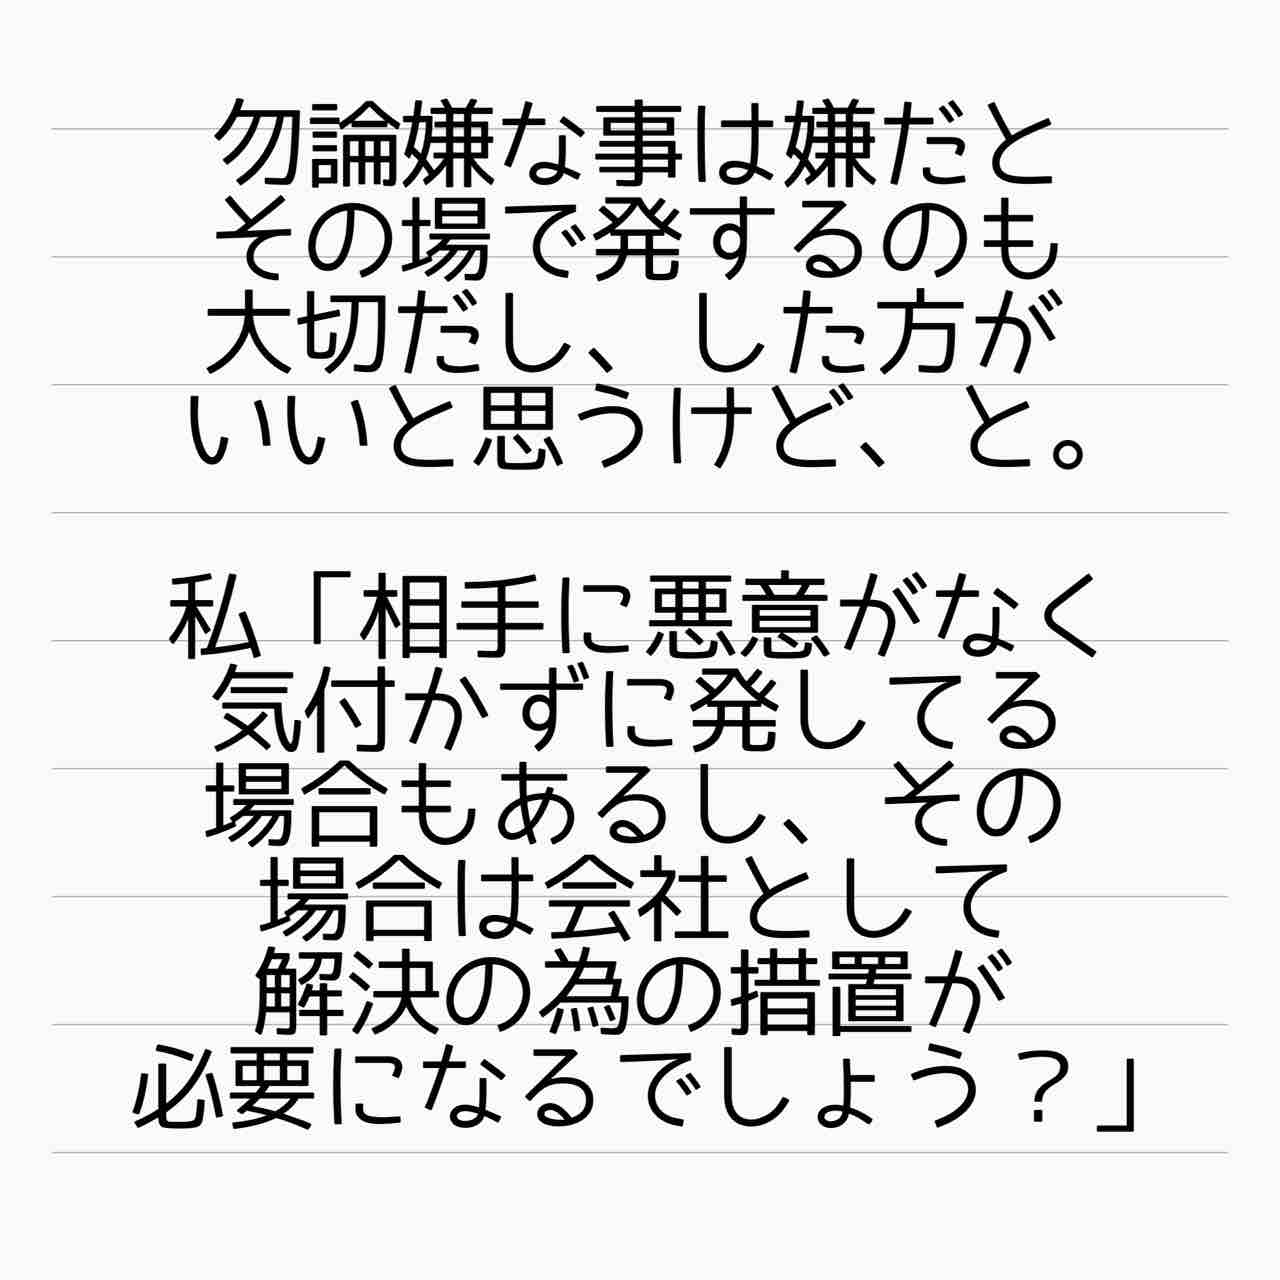 勿論嫌な事は嫌だと
その場で発するのも
大切だし、した方が
いいと思うけど、と。
私「相手に悪意がなく
気付かずに発してる
場合もあるし、その
場合は会社として
解決の為の措置が
必要になるでしょう？」